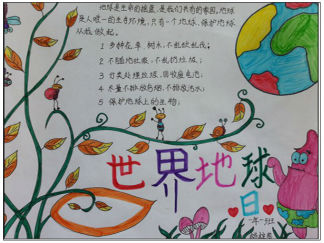 地球是生命的摇篮,是我们共有的家园,地球
类人唯一的生存环境,只有一个地球,保护地球
从我做起。
1 多种花草、树木,不乱砍乱伐;
2 不随地吐痰、不乱扔垃圾;
3 分类处理垃圾,回收废电池;
4 尽量不排放乌烟,不排废污水;
5 保护地球上的生物;
世界地球
日
一年一班